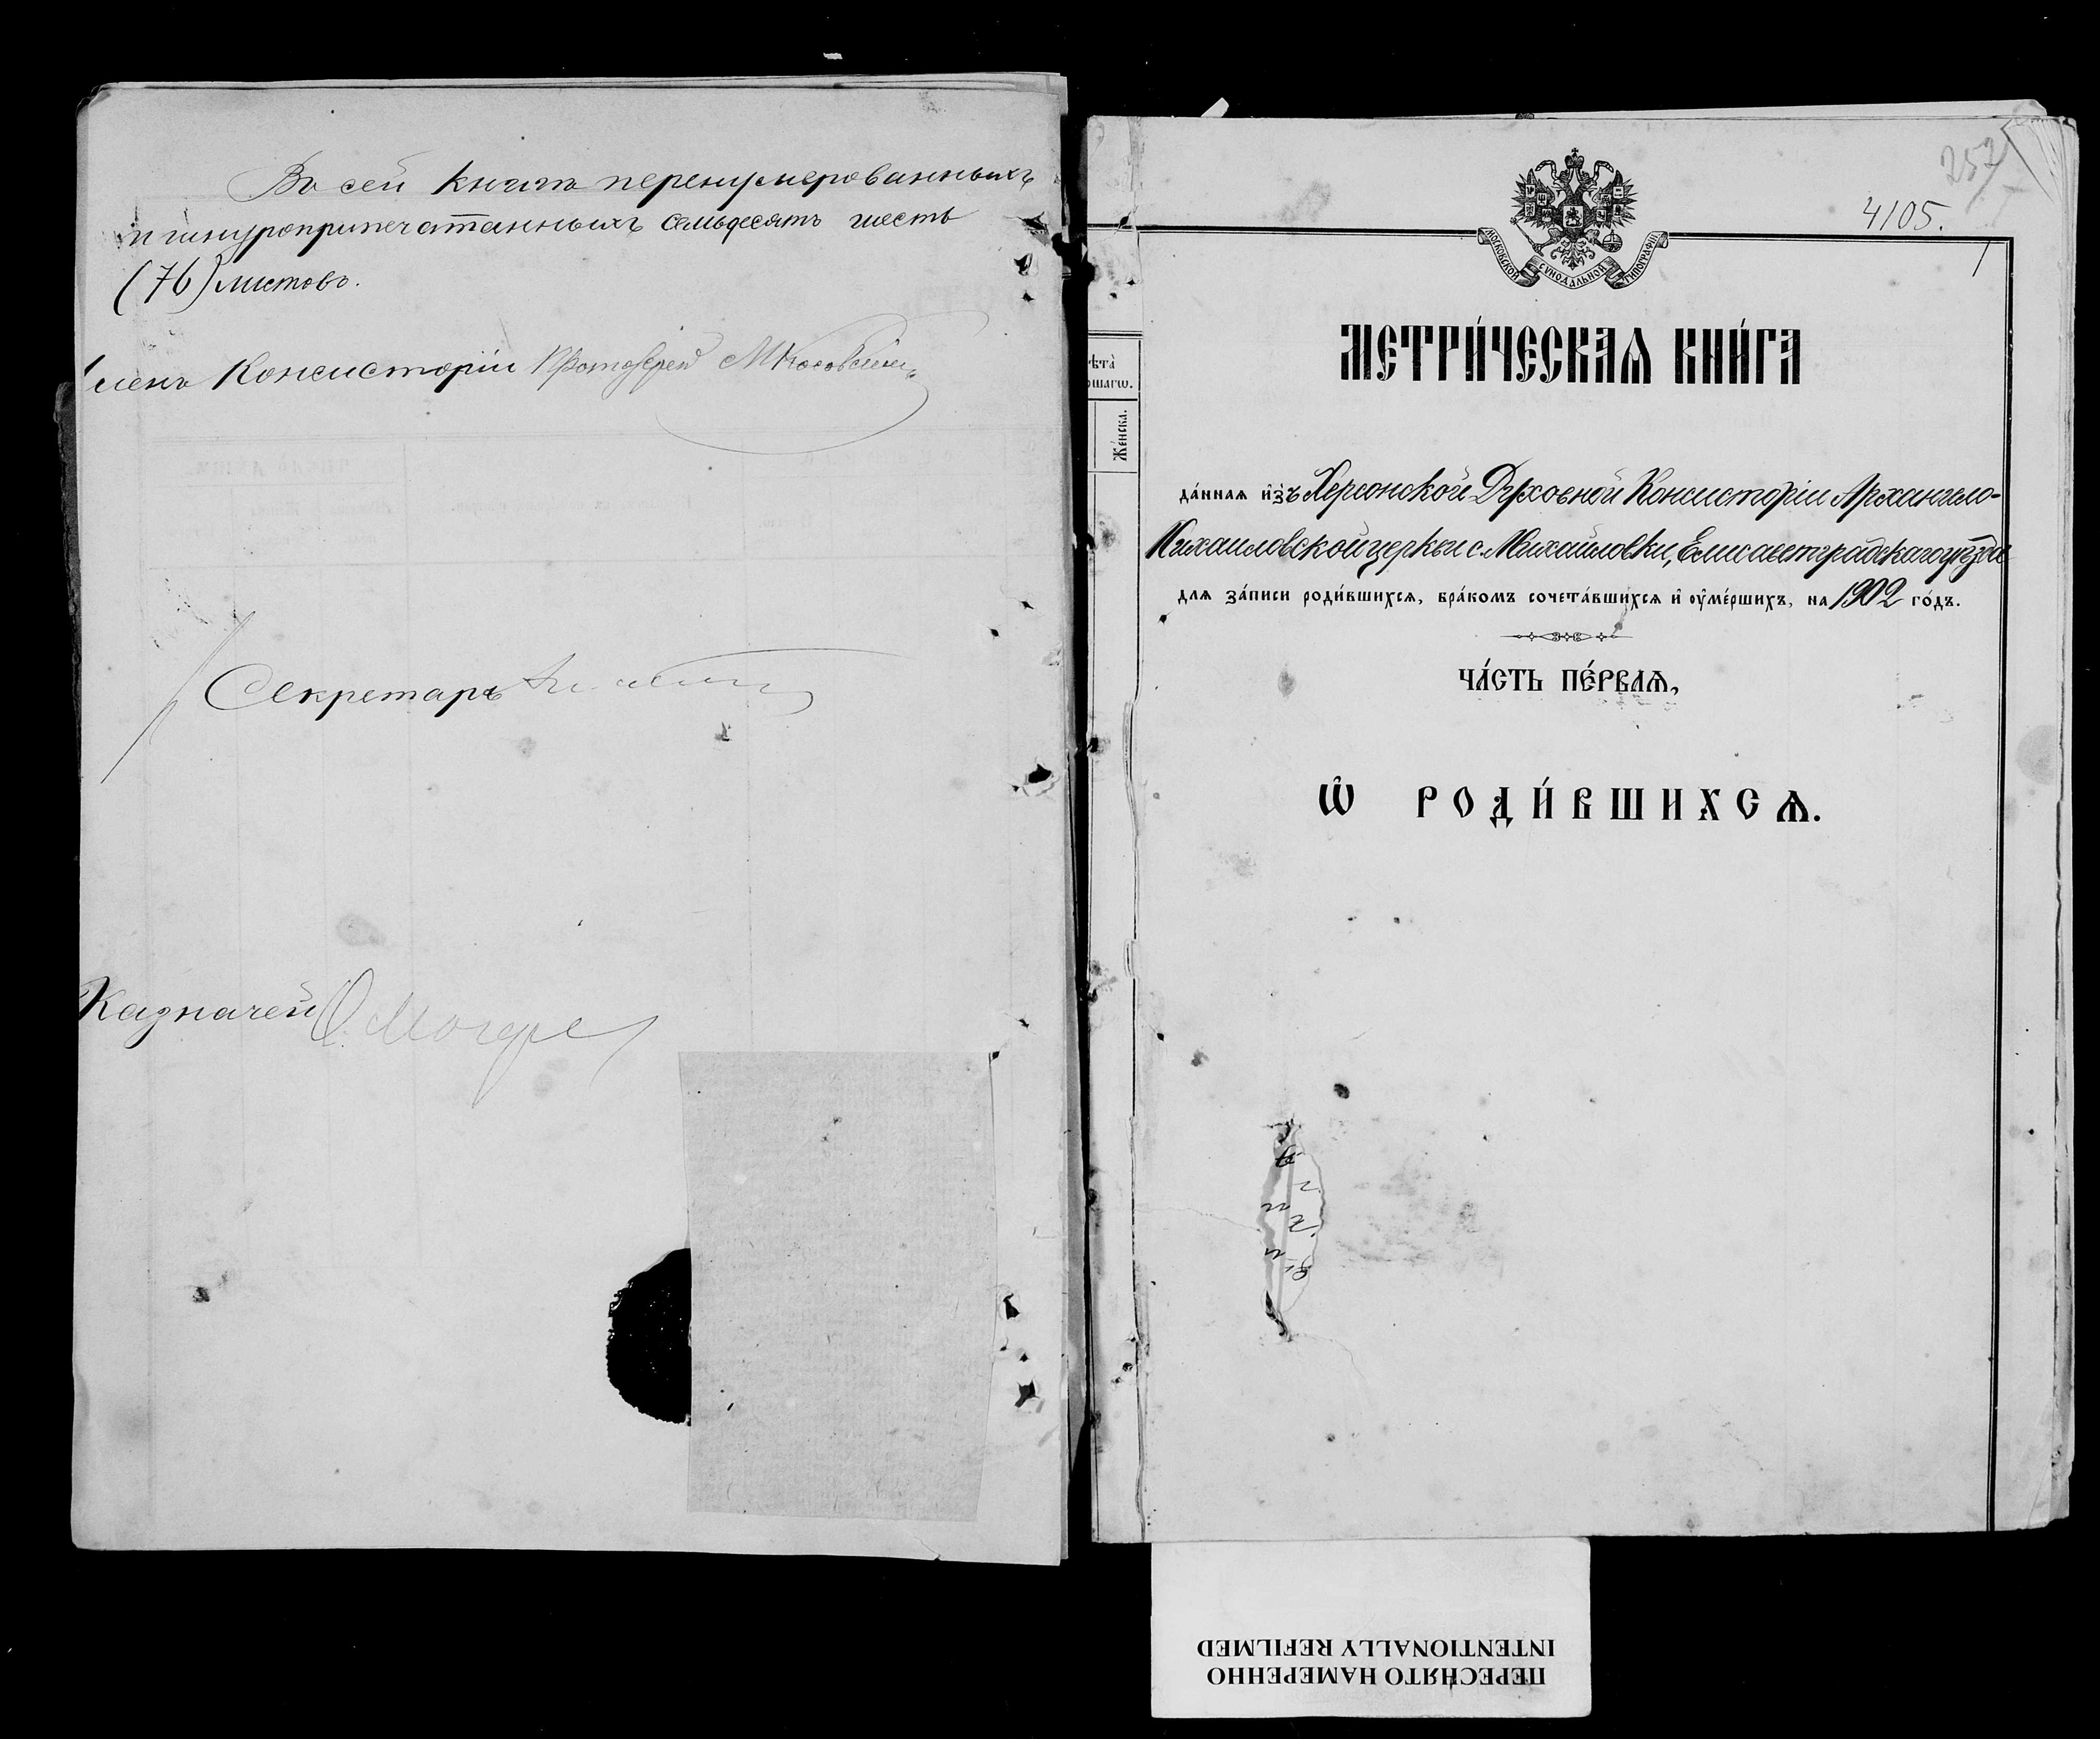 Въ сей книгѣ перенумерованныхъ
и шнуроприпечатанныхъ семьдесятъ шесть
(76) листовъ.
Членъ Консисторіи Протоіерей
Секретарь
Казначей
257
4105.
1
МОСКОВСКОЙ СѴНОДАЛЬНОЙ ТИПОГРАФІИ
МЕТРИ́ЧЕСКАѦ КНИ́ГА
да́ннаѧ и҆зъ Херсонской Духовной Консисторіи Архангело-
Михайловской церкви с. Михайловки, Елисаветградскаго уѣзда
длѧ за́писи роди́вшихсѧ, бра́комъ сочета́вшихсѧ и҆ ᲂу҆ме́ршихъ, на 1902 го́дъ.
ЧА́СТЬ ПЕ́РВАѦ,
Ѡ҆ РОДИ́ВШИХСѦ.
ѣта̀
ршагѡ.
Же́нска.
ПЕРЕСНЯТО НАМЕРЕННО
INTENTIONALLY REFILMED